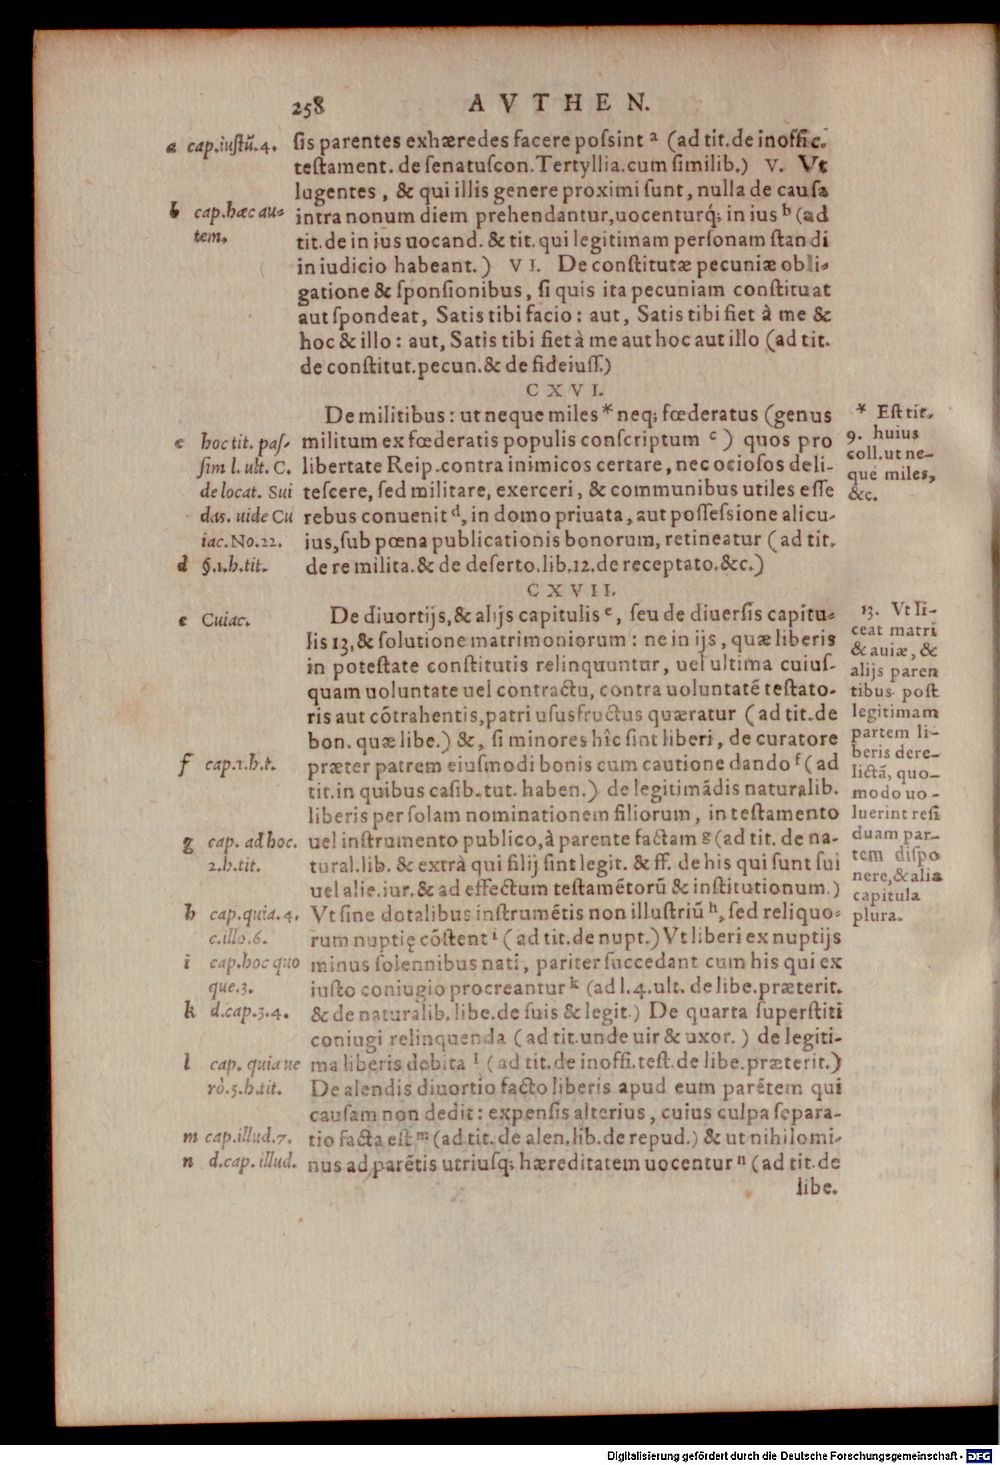 258 AVTHEN.
ſis parentes exhæredes facere poſsint ᵃ (ad tit. de inoffic.
teſtament. de ſenatuſcon. Tertyllia. cum ſimilib.) V. Vt
lugentes, & qui illis genere proximi ſunt, nulla de cauſa
intra nonum diem prehendantur, uocenturq́; in ius ᵇ (ad
tit. de in ius uocand. & tit. qui legitimam perſonam ſtandi
in iudicio habeant.) VI. De conſtitutæ pecuniæ obli-
gatione & ſponſionibus, ſi quis ita pecuniam conſtituat
aut ſpondeat, Satis tibi facio: aut, Satis tibi fiet à me &
hoc & illo: aut, Satis tibi fiet à me aut hoc aut illo (ad tit.
de conſtitut. pecun. & de fideiuſſ.)
a cap. iuſtũ. 4.
b cap. hæc au-
tem.
CXVI.
De militibus: ut neque miles * neq; fœderatus (genus
militum ex fœderatis populis conſcriptum ᶜ) quos pro
libertate Reip. contra inimicos certare, nec ocioſos deli-
teſcere, ſed militare, exerceri, & communibus utiles eſſe
rebus conuenit ᵈ, in domo priuata, aut poſſeſsione alicu-
ius, ſub pœna publicationis bonorum, retineatur (ad tit.
de re milita. & de deſerto. lib. 12. de receptato. &c.)
c hoc tit. paſ-
ſim l. ult. C.
de locat. Sui
das. uide Cu
iac. No. 22.
d §. 1. h. tit.
* Eſt tit.
9. huius
coll. ut ne-
que miles,
&c.
CXVII.
De diuortijs, & alijs capitulis ᵉ, ſeu de diuerſis capitu-
lis 13, & ſolutione matrimoniorum: ne in ijs, quæ liberis
in poteſtate conſtitutis relinquuntur, uel ultima cuiuſ-
quam uoluntate uel contractu, contra uoluntatẽ teſtato-
ris aut cõtrahentis, patri uſusfructus quæratur (ad tit. de
bon. quæ libe.) &, ſi minores hîc ſint liberi, de curatore
præter patrem eiuſmodi bonis cum cautione dando ᶠ (ad
tit. in quibus caſib. tut. haben.) de legitimãdis naturalib.
liberis per ſolam nominationem filiorum, in teſtamento
uel inſtrumento publico, à parente factam ᵍ (ad tit. de na-
tural. lib. & extrà qui filij ſint legit. & ff. de his qui ſunt ſui
uel alie. iur. & ad effectum teſtamẽtorũ & inſtitutionum.)
Vt ſine dotalibus inſtrumẽtis non illuſtriũ ʰ, ſed reliquo-
rum nuptię cõſtent ⁱ (ad tit. de nupt.) Vt liberi ex nuptijs
minus ſolennibus nati, pariter ſuccedant cum his qui ex
iuſto coniugio procreantur ᵏ (ad l. 4. ult. de libe. præterit.
& de naturalib. libe. de ſuis & legit.) De quarta ſuperſtiti
coniugi relinquenda (ad tit. unde uir & uxor.) de legiti-
ma liberis debita ˡ (ad tit. de inoffi. teſt. de libe. præterit.)
De alendis diuortio facto liberis apud eum parẽtem qui
cauſam non dedit: expenſis alterius, cuius culpa ſepara-
tio facta eſt ᵐ (ad tit. de alen. lib. de repud.) & ut nihilomi-
nus ad parẽtis utriuſq; hæreditatem uocentur ⁿ (ad tit. de
libe.
e Cuiac.
f cap. 1. h. t.
g cap. ad hoc.
2. h. tit.
h cap. quia. 4.
c. illo. 6.
i cap. hoc quo
que. 3.
k d. cap. 3. 4.
l cap. quia ue
rò. 5. h. tit.
m cap. illud. 7.
n d. cap. illud.
13. Vt li-
ceat matri
& auiæ, &
alijs paren
tibus poſt
legitimam
partem li-
beris dere-
lictã, quo-
modo uo-
luerint reſi
duam par-
tem diſpo
nere, & alia
capitula
plura.
Digitalisierung gefördert durch die Deutsche Forschungsgemeinschaft - DFG